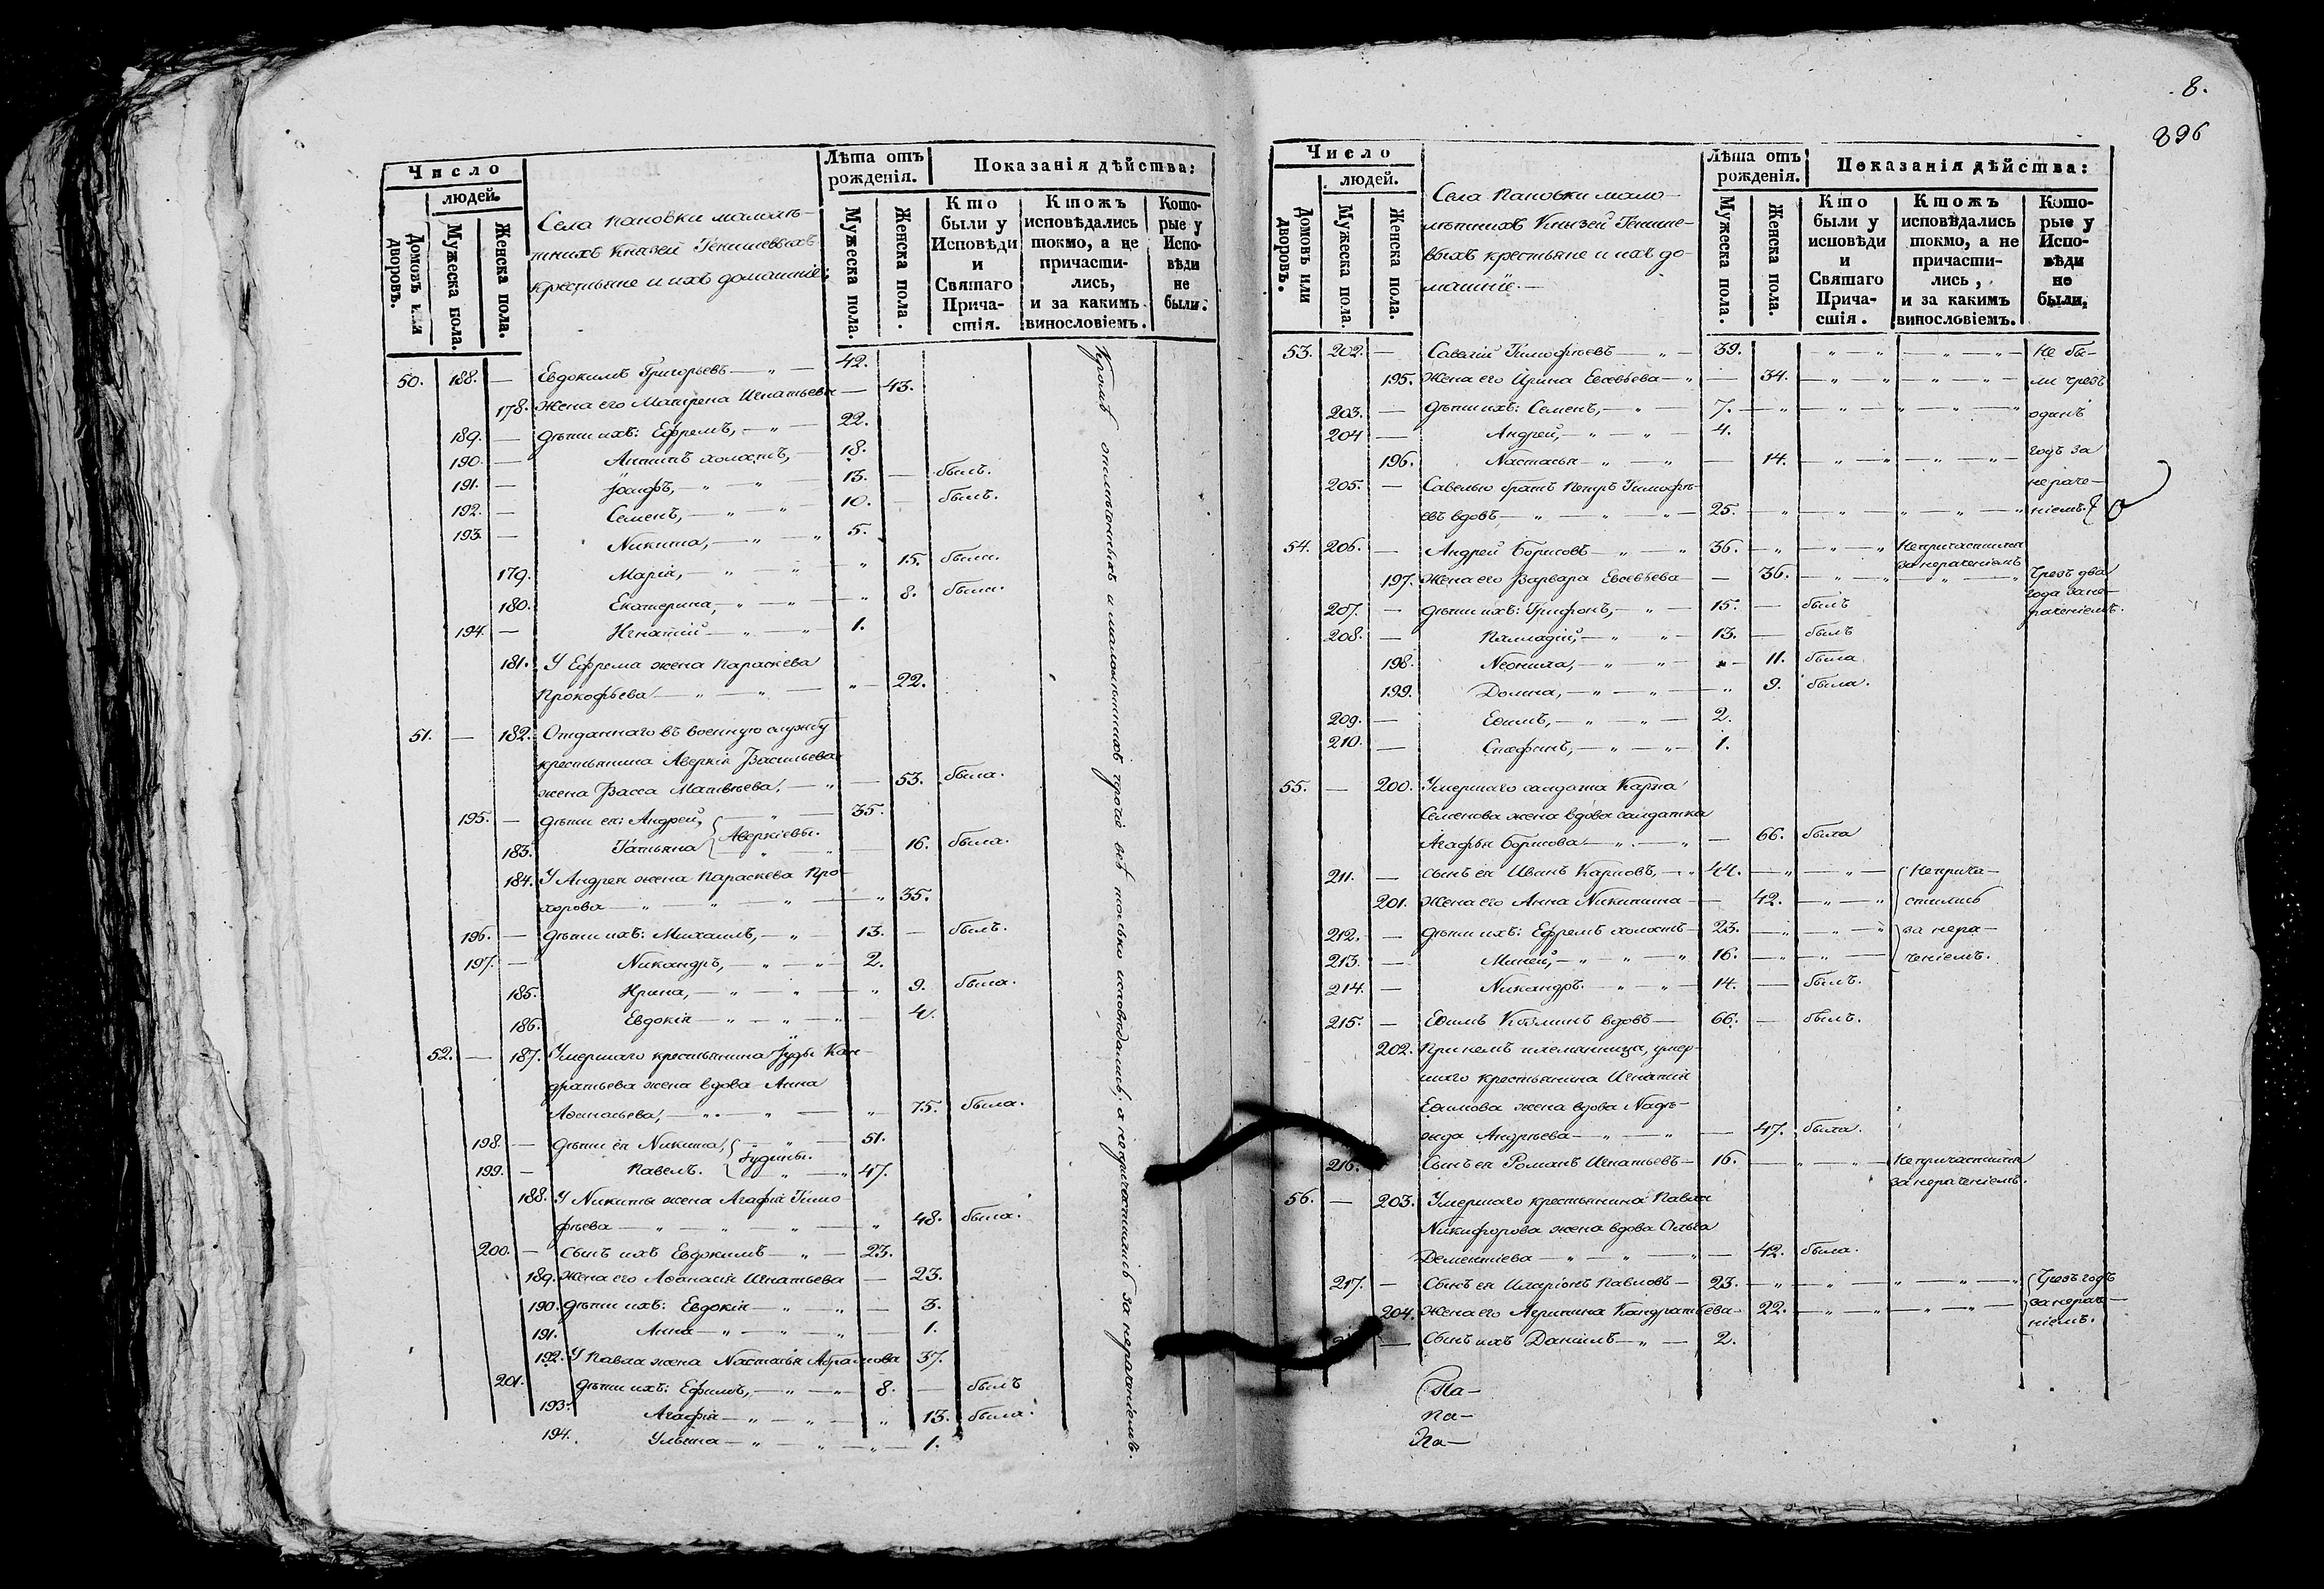 Число
людей.
Домовъ или дворовъ.
Мужеска пола.
Женска пола.
Села Пановки малолѣ-
тнихъ Князей Енишевыхъ
крестьяне и ихъ домашніе:
Лѣта отъ рожденія.
Мужеска пола.
Женска пола.
Показанія дѣйства:
Кто были у Исповѣди и Святаго Прича-стія.
Ктожъ исповѣдались токмо, а не причасти-лись, и за какимъ винословіемъ.
Кото-рые у Испо-вѣди не были.
50. 188. — Евдокимъ Григорьевъ — „ — 42.
178. Жена его Матрена Игнатьева — 43.
189. — Дѣти ихъ: Ефремъ, — „ — 22.
190. — Антипъ холостъ, — 18.
191. — Іосифъ, — „ — „ — 13. — былъ.
192. — Семенъ, — „ — „ — 10. — былъ.
193. — Никита, — „ — „ 5.
179. Марія, — „ — „ — „ 15. была.
180. Екатерина, — „ — „ — „ 8. была.
194. — Игнатій — „ — „ 1.
181. У Ефрема жена Параскева
Прокофьева — „ — „ — „ — 22.
51. — 182. Отданнаго въ военную службу
крестьянина Аверкія Васильева
жена Васса Матвѣева, — „ — 53. была.
195. — Дѣти ея: Андрей, — „ — 35.
183. Татьяна Аверкіевы. — „ — „ — 16. была.
184. У Андрея жена Параскева Про-
хорова — „ — „ — „ — „ 35.
196. — Дѣти ихъ: Михаилъ, — „ — 13. — былъ.
197. — Никандръ, — „ — „ — 2.
185. Ирина, — „ — „ — „ 9. была.
186. Евдокія — „ — „ — „ — 4.
52. — 187. Умершаго крестьянина Іуды Кон-
дратьева жена вдова Анна
Аѳанасьева, — „ — „ — „ 75. была.
198. — Дѣти ея Никита, — „ — 51.
199. — Павелъ. Іудины. „ — „ 47.
188. У Никиты жена Агафія Тимо-
фѣева — „ — „ — „ — „ 48. была.
200. — Сынъ ихъ Евдокимъ — „ — 23.
189. Жена его Аѳанасія Игнатьева — 23.
190. Дѣти ихъ: Евдокія — „ — „ — 3.
191. Анна — „ — „ — „ — 1.
192. У Павла жена Настасья Абрамова 37.
201. Дѣти ихъ: Ефимъ, — „ — „ 8. — былъ
193. Агафія — „ — „ — „ 13. была.
194. Ульяна — „ — „ — „ — 1.
Кромѣ отлученныхъ и малолѣтнихъ прочіе всѣ только исповѣдались, а непричастились за нераченіемъ.
8.
896
Число
людей.
Домовъ или дворовъ.
Мужеска пола.
Женска пола.
Села Пановки мало-
лѣтнихъ Князей Енише-
выхъ крестьяне и ихъ до-
машніе. —
Лѣта отъ рожденія.
Мужеска пола.
Женска пола.
Показанія дѣйства:
Кто были у исповѣди и Святаго Прича-стія.
Ктожъ исповѣдались токмо, а не причасти-лись, и за какимъ винословіемъ.
Кото-рые у Испо-вѣди не были.
53. 202. — Савелій Тимофѣевъ — „ — 39. „ — „ — „ — „ Не бы-
195. Жена его Ирина Евсевьева — „ — 34. — „ — „ — „ ли чрезъ
203. — Дѣти ихъ: Семенъ, — „ — 7. — „ — „ — „ одинъ
204 — Андрей, — „ — „ — 4.
196. Настасья — „ — „ — 14. — „ — „ — „ годъ за
205. — Савелью братъ Петръ Тимофѣ- нераче-
евъ вдовъ — „ — „ — „ — 25. — „ — „ — „ ніемъ.
54. 206. — Андрей Борисовъ — „ — „ 36. — „ — „ — „ Непричастился
за нераченіемъ
197. Жена его Варвара Евсевьева — — 36. — „ — „ — „ Чрезъ два
года за не-
207. — Дѣти ихъ: Трифонъ, — „ — 15. — былъ раченіемъ.
208. — Палладій, — „ — „ — 13. — былъ
198. Неонила, — „ — „ — „ — 11. была
199. Домна, — „ — „ — „ 9. была.
209. — Ефимъ, — „ — „ — 2.
210. — Серафимъ, — „ — „ — 1.
55. — 200. Умершаго солдата Карпа
Семенова жена вдова солдатка
Агафья Борисова — „ — „ — 66. была
211. — Сынъ ея Иванъ Карповъ, — „ 44. — „ — „ — Неприча-
201. Жена его Анна Никитина — 42. — „ — „ стились
212. — Дѣти ихъ: Ефремъ холостъ — 23. — „ — „ — „ за нера-
213. — Миней, — „ — „ — „ 16. — „ — „ — ченіемъ.
214. — Никандръ. — „ — „ — 14. — былъ.
215. — Ефимъ Козминъ вдовъ — 66. — былъ.
202. При немъ племянница, умер-
шаго крестьянина Игнатія
Ефимова жена вдова Надѣ-
жда Андрѣева — „ — „ — 47. была.
216. Сынъ ея Романъ Игнатьевъ — 16. — „ — „ — Непричастился
за нераченіемъ.
56. — 203. Умершаго крестьянина Павла
Никифорова жена вдова Ольга
Дементіева — „ — „ — „ — 42. была.
217. — Сынъ ея Иларіонъ Павловъ — 23. — „ — „ — „ — „ Чрезъ годъ
204. Жена его Агрипина Кондратьева — 22. — „ — „ — „ за нераче-
— Сынъ ихъ Даніилъ — „ — 2. ніемъ.
Па-
па-